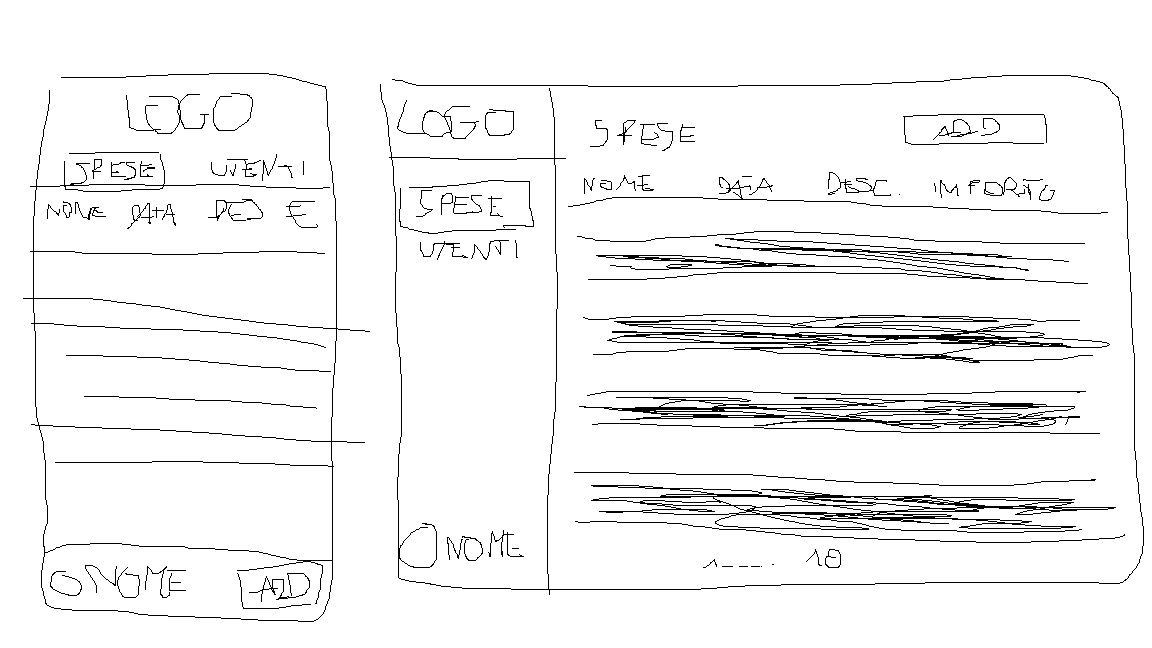 LOGO
SPESE UTENTI
NOME DATA DES €
NOME ADD
LOGO
SPESE
UTENTI
NOME
SPESE ADD
NOME DATA DESC. IMPORTO
1---. 10